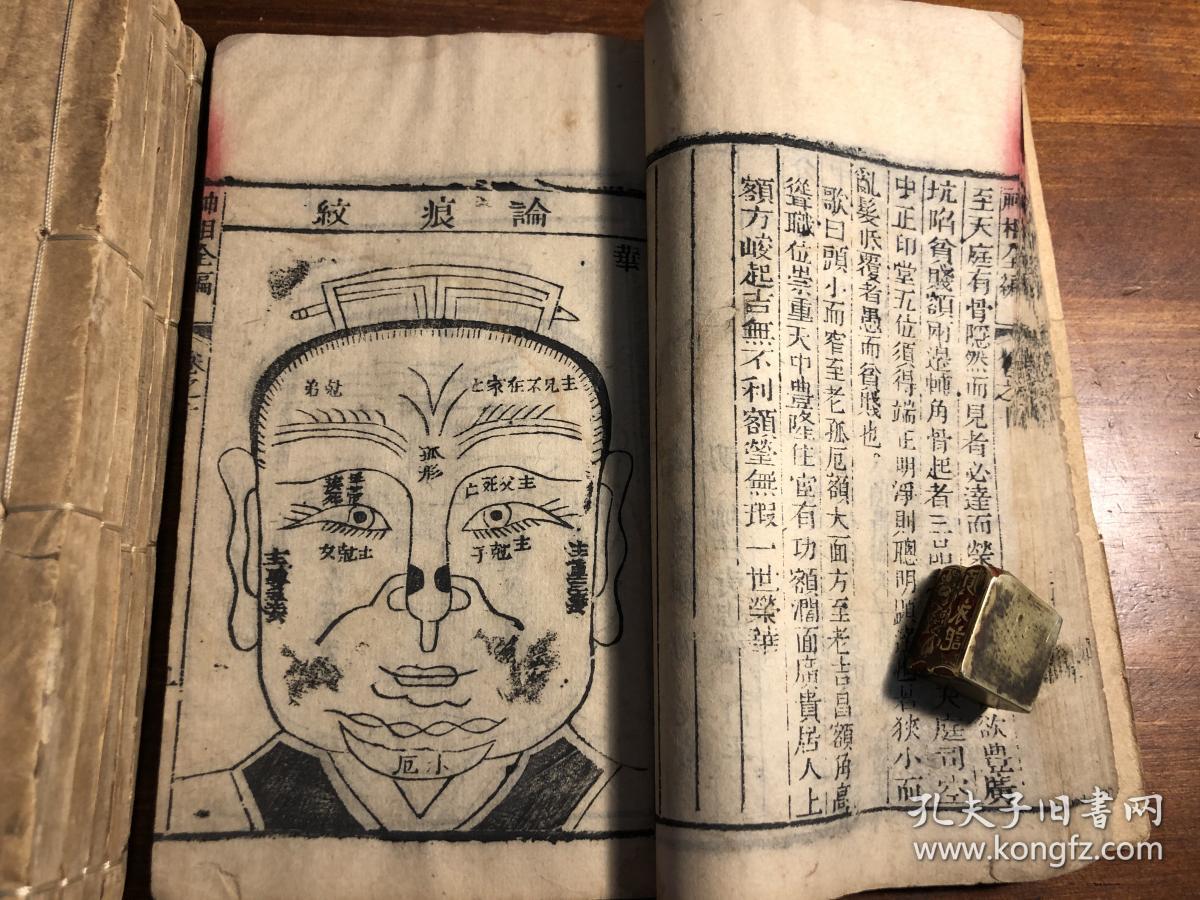 至天庭有骨隱然而見者必達而榮
欲豊廣
坑陷貧賤額兩邊輔角骨起者三品
天庭司空
中正印堂五位須得端正明淨則聰明顯
狹小而
亂髮低覆者愚而貧賤也。
歌曰頭小而窄至老孤厄額大面方至老吉昌額角高
聳職位崇重天中豊隆仕宦有功額濶面廣貴居人上
額方峻起吉無不利額瑩無瑕一世榮華
神相全編
論痕紋
華
主兄不在家亡
尅弟
孤形
主父死亡
主尅子
主尅女
小厄
神相全編
卷之
孔夫子旧书网
www.kongfz.com